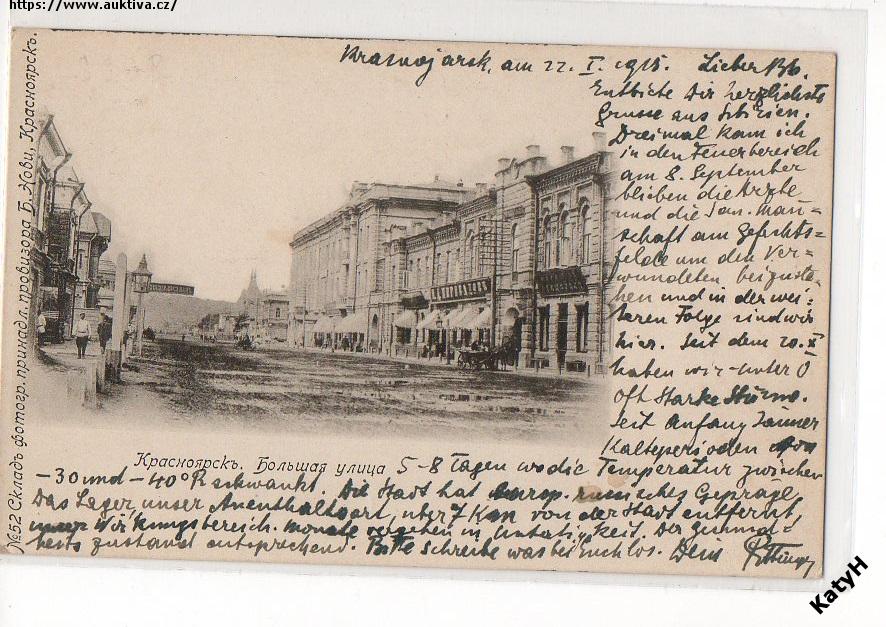 https://www.auktiva.cz/
Krasnojarsk, am 22. I. 1915. Lieber
Entbiete Dir herzlichste
Grüsse aus Sibirien.
Dreimal kam ich
in den Feuerbereich
am 8. September
blieben die Ärzte
und die San. Man=
schaft am Gefechts=
felde um den Ver=
wundeten beizuste=
hen und in der wei=
teren Folge sind wir
hier. Seit dem 20. X
haben wir unter 0
oft starke Stürme.
Seit Anfang Jänner
Kälteperioden von
5-8 Tagen wo die Temperatur zwischen
-30 und -40° R schwankt. Die Stadt hat europ. russisches Gepräge
Das Lager, unser Aufenthaltsort, über 7 km von der Stadt entfernt,
unser Wirkungsbereich. Monate vergehen in Untätigkeit. Der Gesund=
heitszustand entsprechend. Bitte schreibe was bei Euch los. Dein
Красноярскъ. Большая улица
№52 Складъ фотогр. принадл. провизора Б. Нови, Красноярскъ.
KatyH